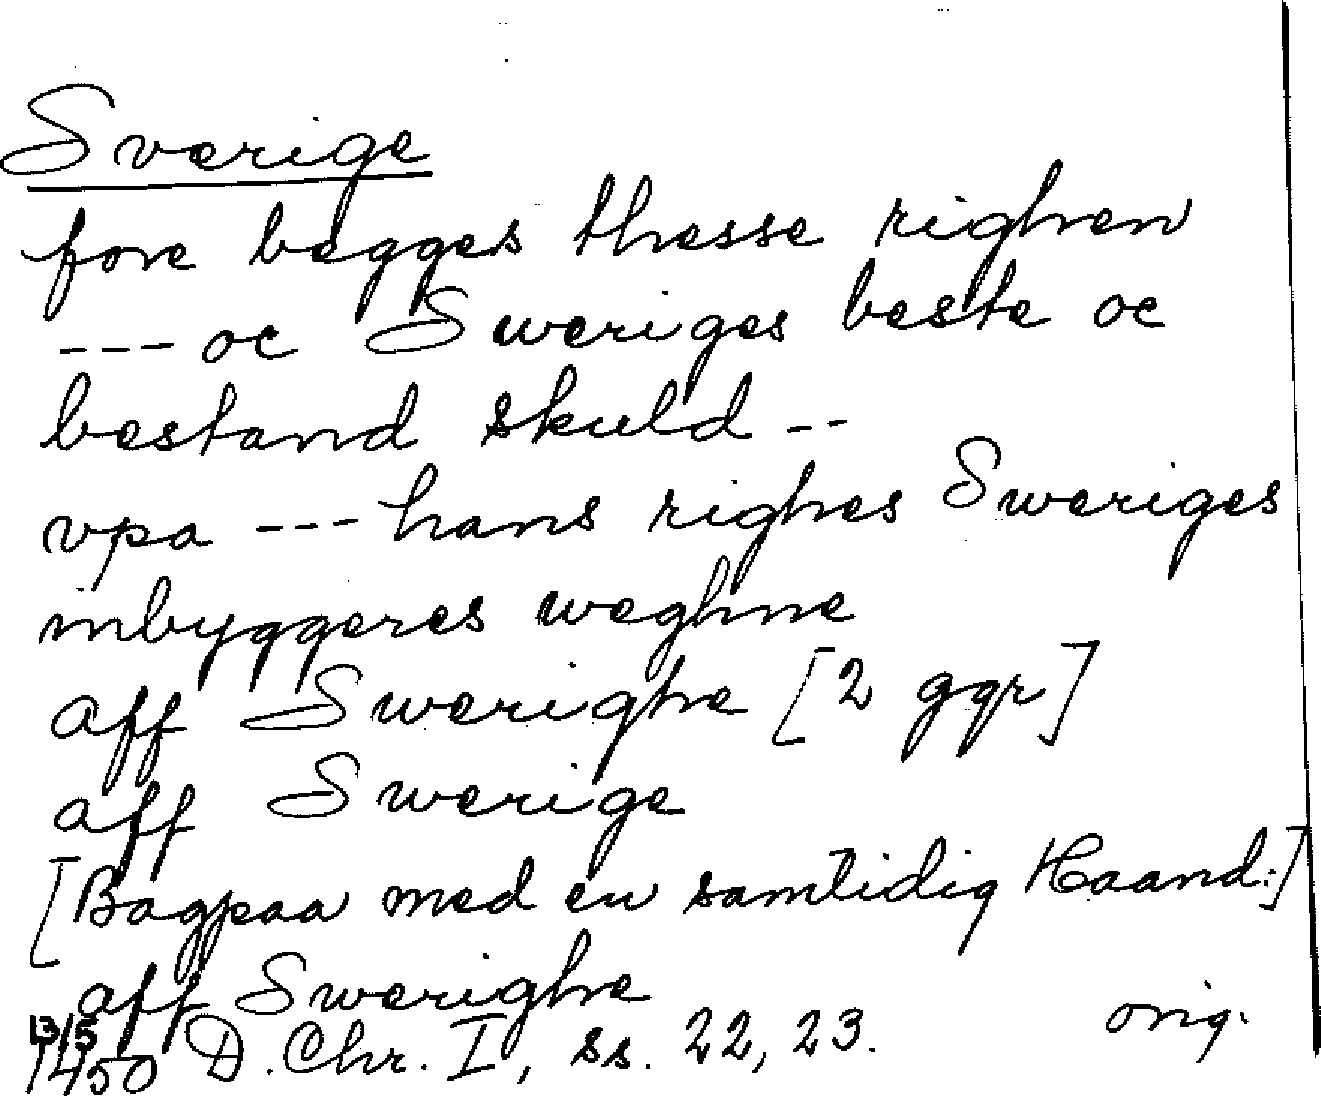 Sværige
fore begges thesse righen
--- oc Sweriges beste oc
bestand skuld --
vpa --- hans righes Sweriges
inbyggeres weghne
aff Swerighe [2 ggr]
aff Swerige
[Bagpaa med en samtidig Haand:]
aff Swerighe
13/5
1450 D. Chr. I, ss. 22, 23. orig.